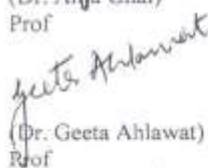 (Dr. Anju Ghai)
Prof
Geeta Ahlawat
(Dr. Geeta Ahlawat)
Prof